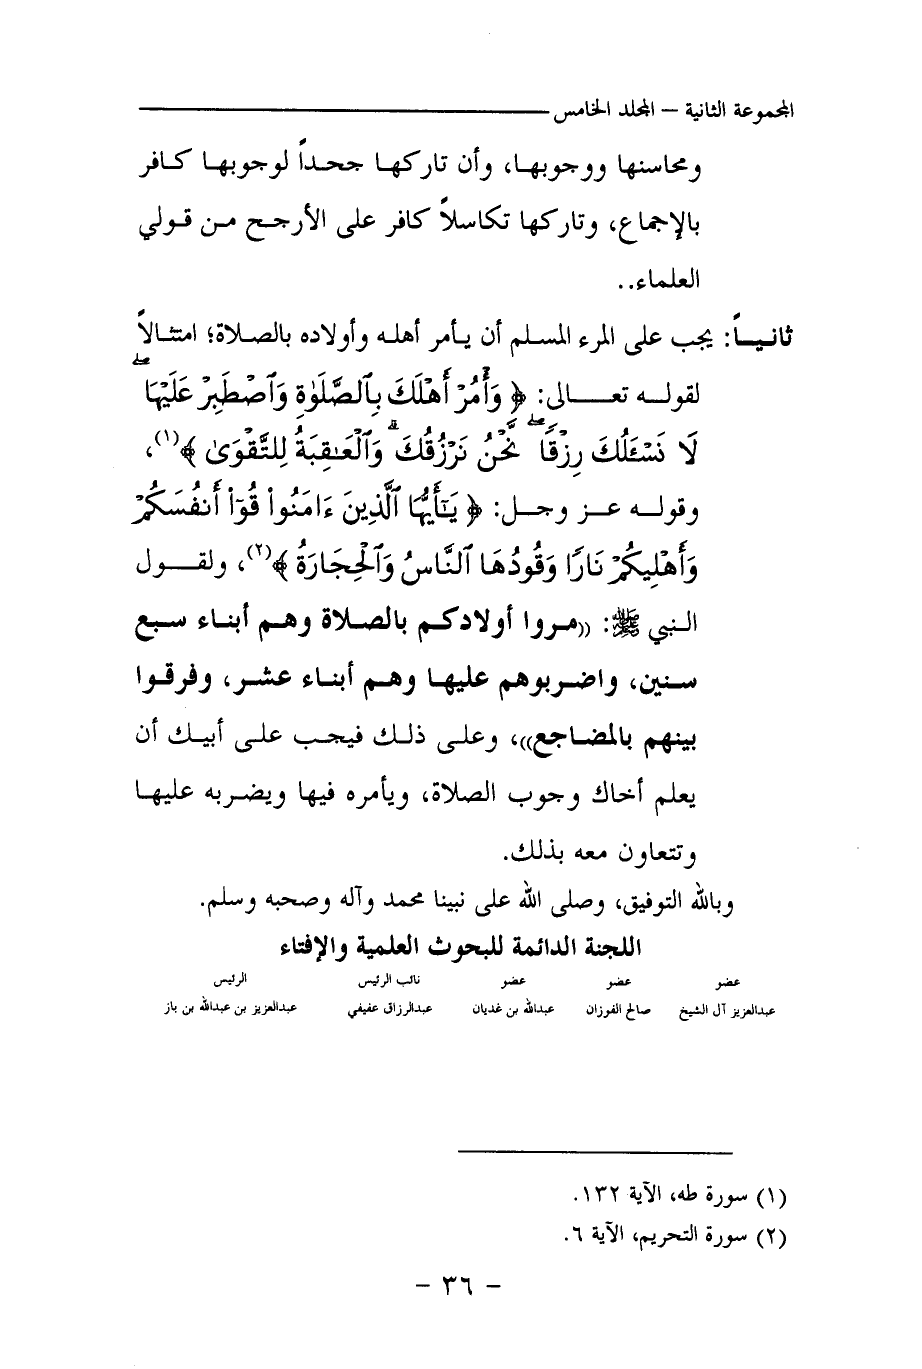 المجموعة الثانية – المجلد الخامس
ومحاسنها ووجوبها، وأن تاركها جحداً لوجوبها كافر
بالإجماع، وتاركها تكاسلاً كافر على الأرجح من قولي
العلماء..
ثانياً: يجب على المرء المسلم أن يأمر أهله وأولاده بالصلاة؛ امتثالاً
لقوله تعالى: ﴿ وَأْمُرْ أَهْلَكَ بِٱلصَّلَوٰةِ وَٱصْطَبِرْ عَلَيْهَا ۖ
لَا نَسْـَٔلُكَ رِزْقًا ۖ نَّحْنُ نَرْزُقُكَ ۗ وَٱلْعَـٰقِبَةُ لِلتَّقْوَىٰ ﴾(١)،
وقوله عز وجل: ﴿ يَـٰٓأَيُّهَا ٱلَّذِينَ ءَامَنُوا۟ قُوٓا۟ أَنفُسَكُمْ
وَأَهْلِيكُمْ نَارًا وَقُودُهَا ٱلنَّاسُ وَٱلْحِجَارَةُ ﴾(٢)، ولقول
النبي ﷺ: ((مروا أولادكم بالصلاة وهم أبناء سبع
سنين، واضربوهم عليها وهم أبناء عشر، وفرقوا
بينهم بالمضاجع))، وعلى ذلك فيجب على أبيك أن
يعلم أخاك وجوب الصلاة، ويأمره فيها ويضربه عليها
وتتعاون معه بذلك.
وبالله التوفيق، وصلى الله على نبينا محمد وآله وصحبه وسلم.
اللجنة الدائمة للبحوث العلمية والإفتاء
عضو عضو عضو نائب الرئيس الرئيس
عبدالعزيز آل الشيخ صالح الفوزان عبدالله بن غديان عبدالرزاق عفيفي عبدالعزيز بن عبدالله بن باز
(١) سورة طه، الآية ١٣٢.
(٢) سورة التحريم، الآية ٦.
- ٣٦ -